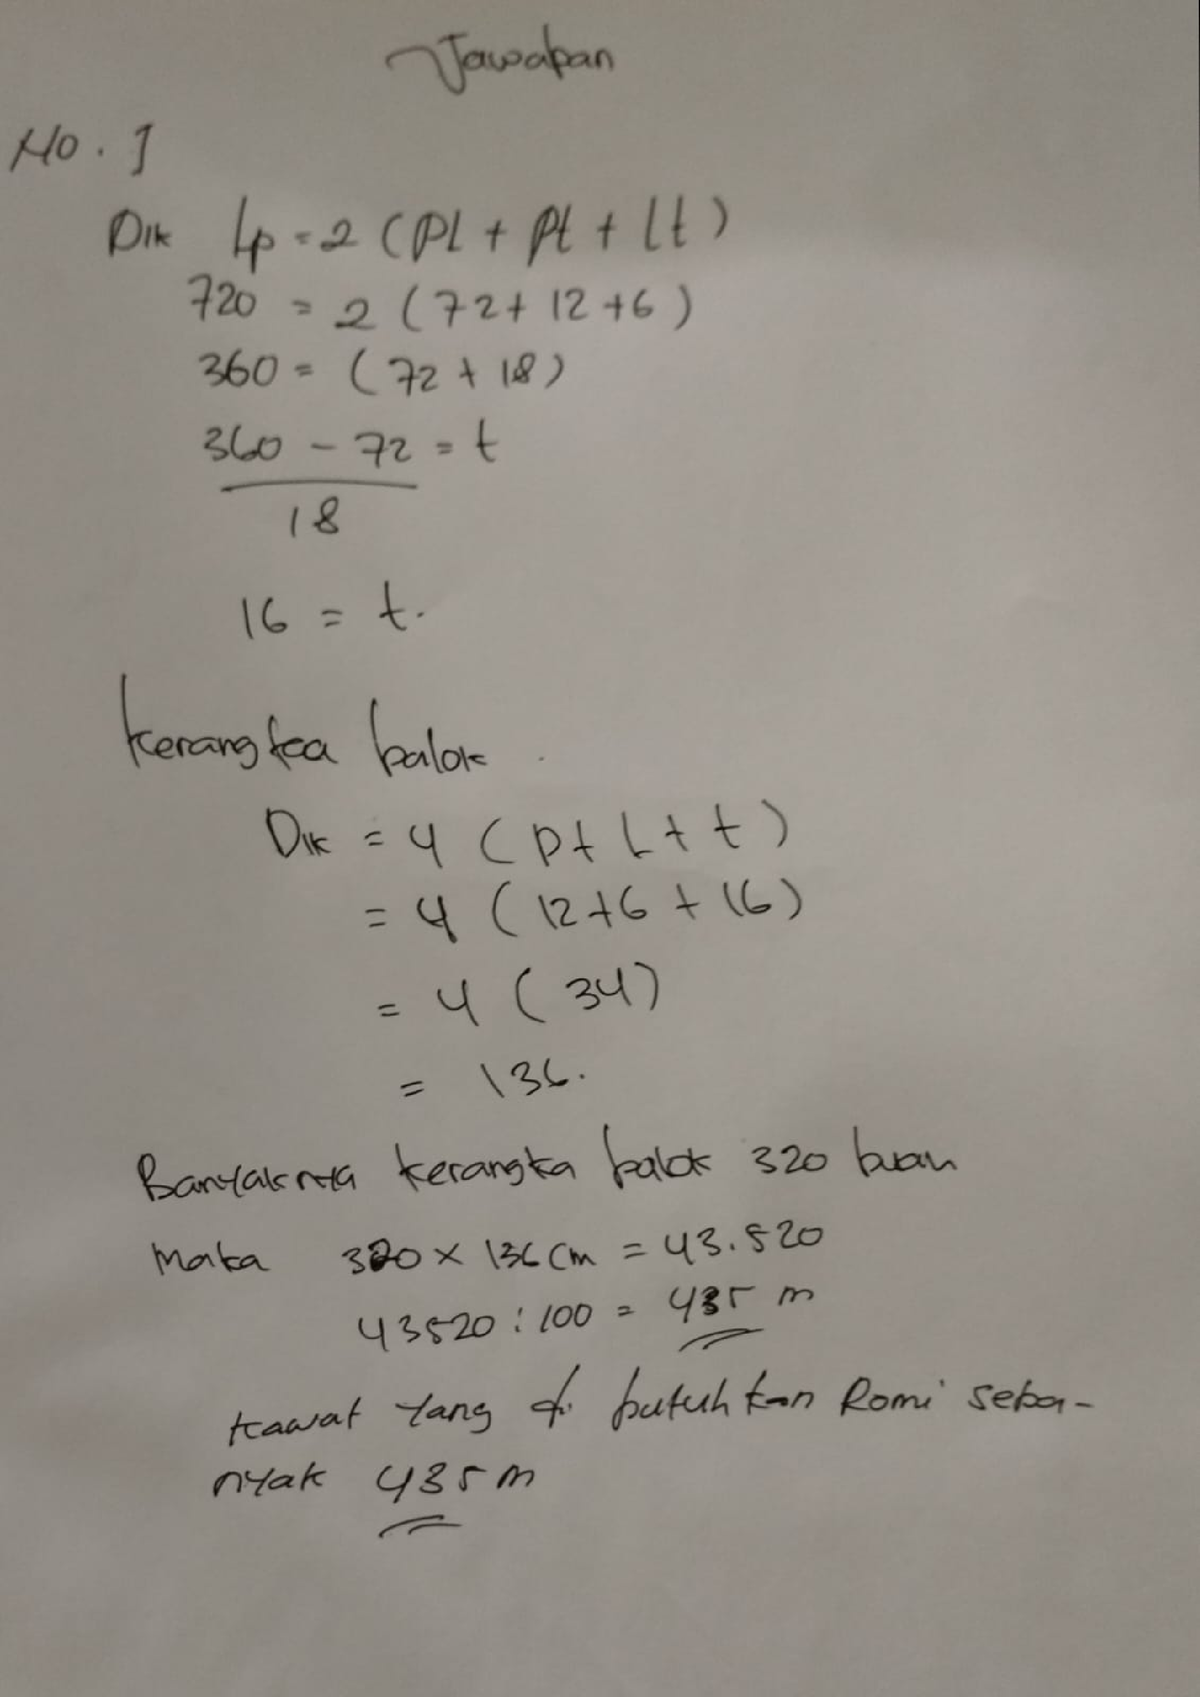 Jawaban
No. 1
Dik Lp = 2 (pl + pt + lt)
720 = 2 (72 + 12 + 6)
360 = (72 + 18)
360 - 72 = t
18
16 = t.
Kerangka balok
Dik = 4 (p + l + t)
= 4 (12 + 6 + 16)
= 4 (34)
= 136.
Banyaknya kerangka balok 320 buah
Maka 320 x 136 cm = 43.520
43520 : 100 = 435 m
Kawat yang di butuhkan Romi seba-
nyak 435 m